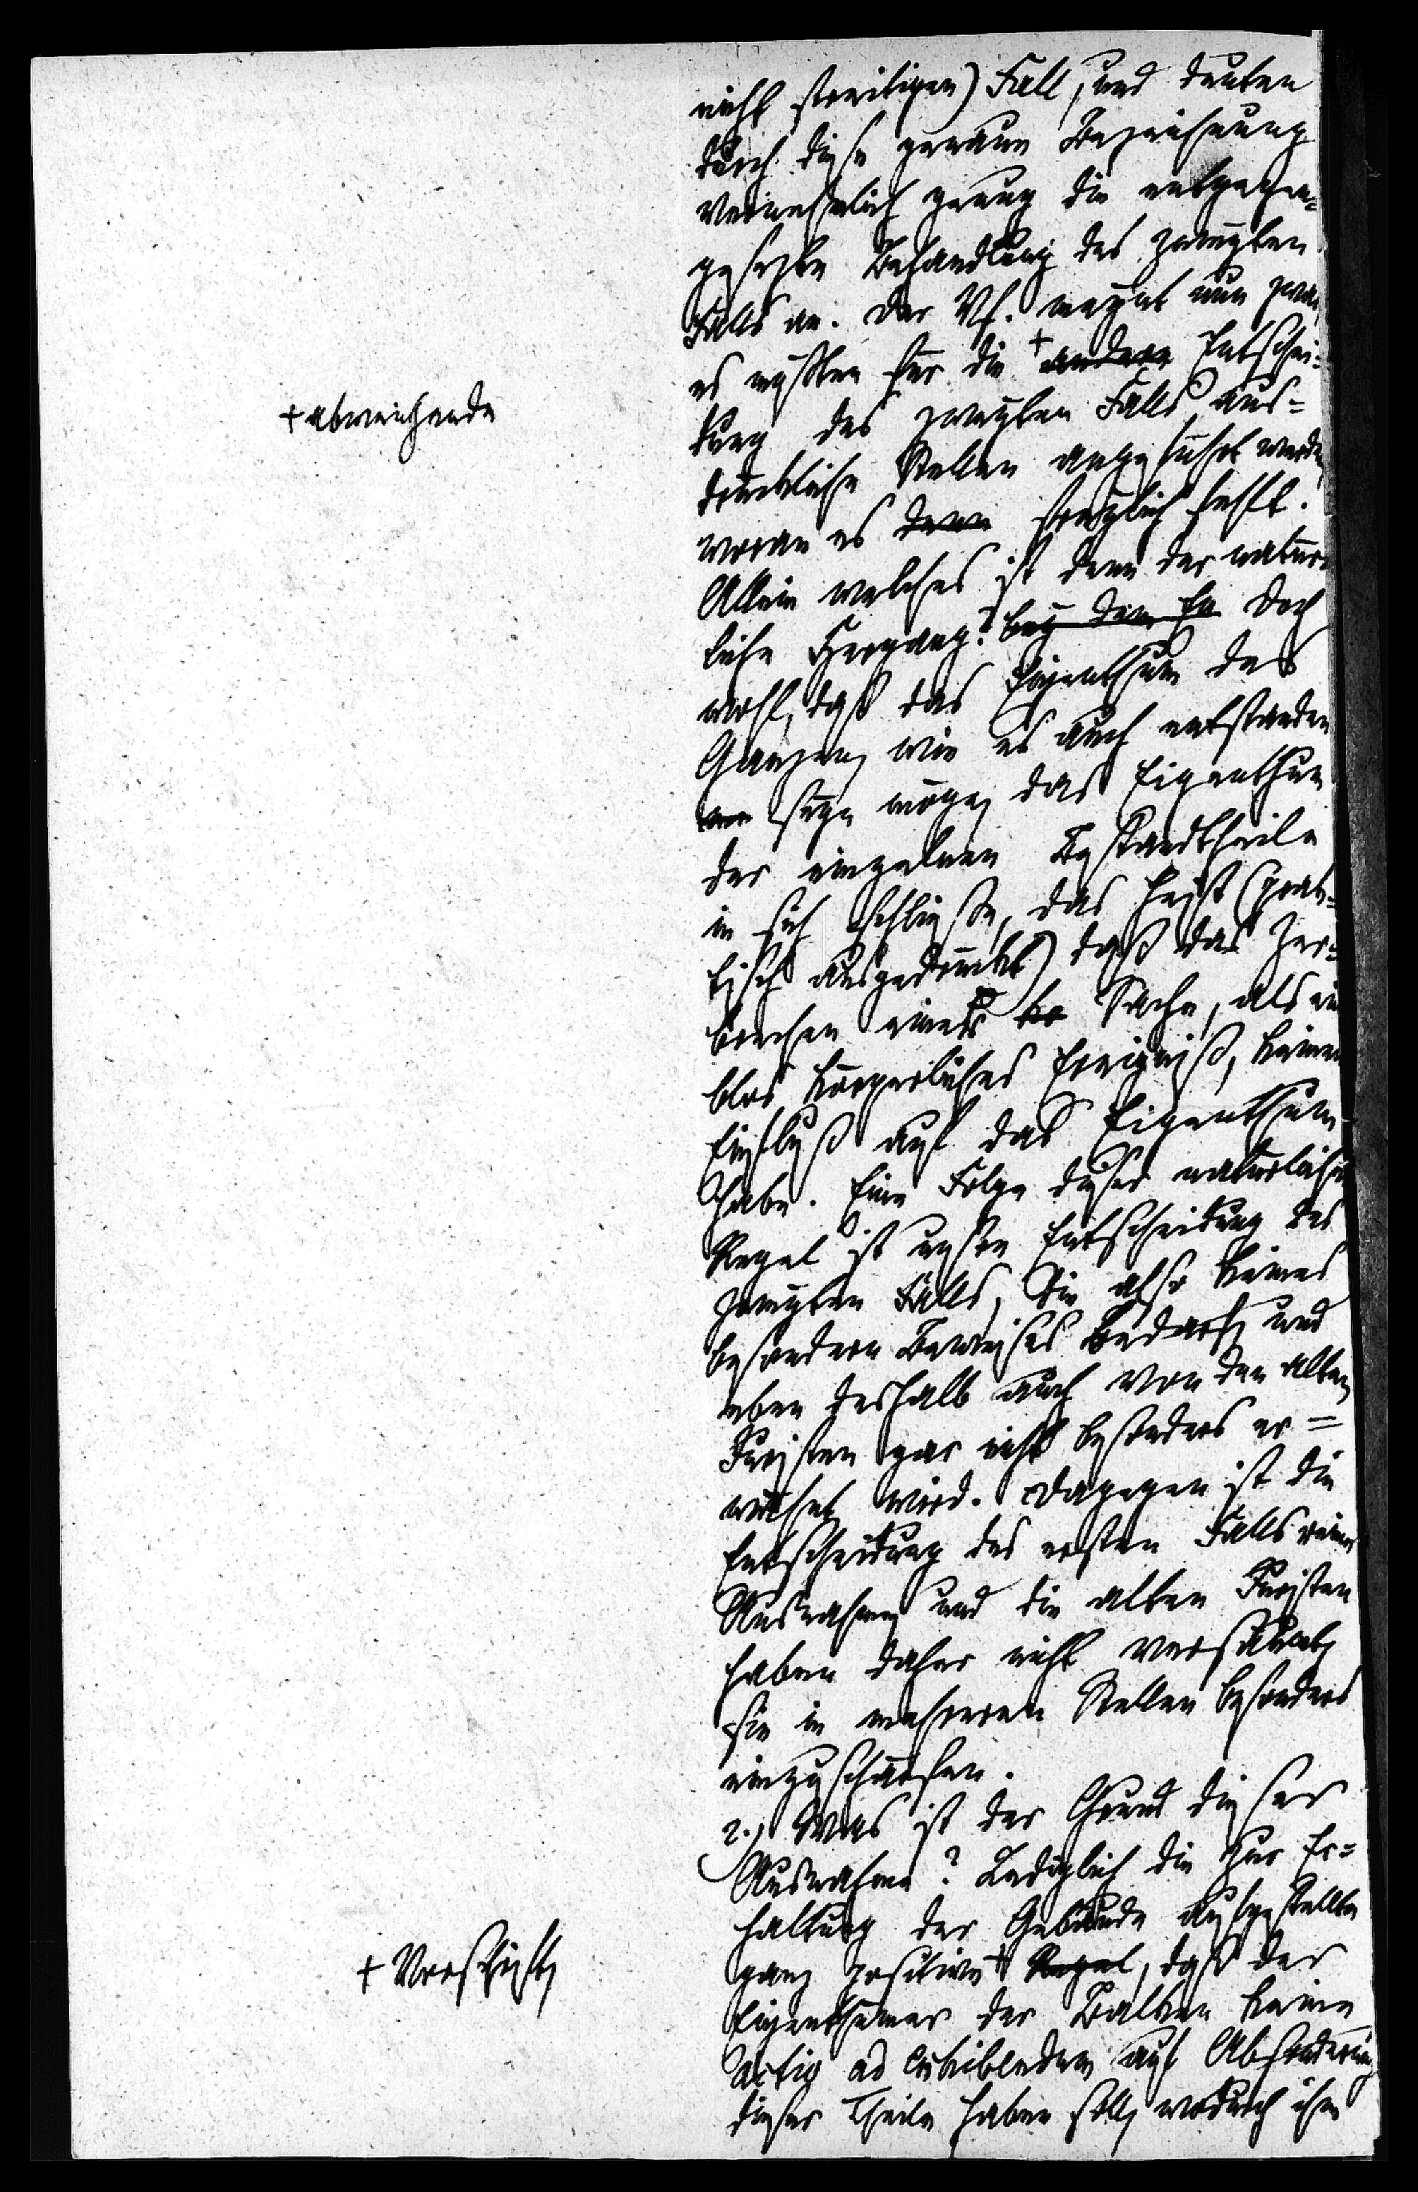 nicht streitigen) Fall, und deuten
durch diese genaue Bezeichnung
vernehmlich genug die entgegen=
gesezte Behandlung des zweyten
Falls an. Der Vf. meynt nun zwar,
es müßten für die + andere Entschei=
+ abweichende
dung des zweyten Falls aus=
drückliche Stellen angeführt werden,
woran es denn freylich fehlt.
Allein welches ist denn der natür=
liche Hergang? bey dem En Doch
wohl, daß das Eigenthum des
Ganzen, wie es auch entstanden
seyn möge, das Eigenthum
der einzelnen Bestandtheile
in sich schließe, das heißt (prak=
tisch ausgedrückt) daß das Zer=
brechen einer Sache, als ein
blos körperliches Ereigniß, keinen
Einfluß auf das Eigenthum
habe. Eine Folge dieser natürlichen
Regel ist unsre Entscheidung des
zweyten Falls, die also keines
besondern Beweises bedarf, und
eben deshalb auch von den alten
Juristen gar nicht besonders er=
wähnt wird. Dagegen ist die
Entscheidung des ersten Falls reine
Ausnahme, und die alten Juristen
haben daher nicht versäumt,
sie in mehreren Stellen besonders
einzuschärfen.
2., Was ist der Grund dieser
Ausnahme? Lediglich die zur Er=
haltung der Gebäude aufgestellte
ganz positive + Regel, daß der
+ Vorschrift,
Eigenthümer der Balken keine
Actio ad exhibendum auf Absonderung
dieser Theile haben soll, wodurch ihm